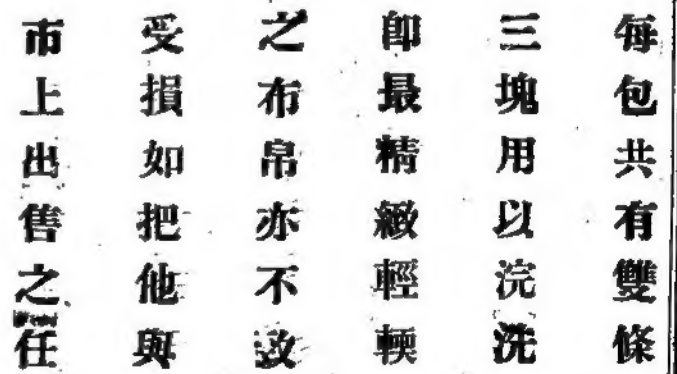 每包共有雙條
三塊用以浣洗
卽最精緻輕輭
之布帛亦不致
受損如把他與
市上出售之任